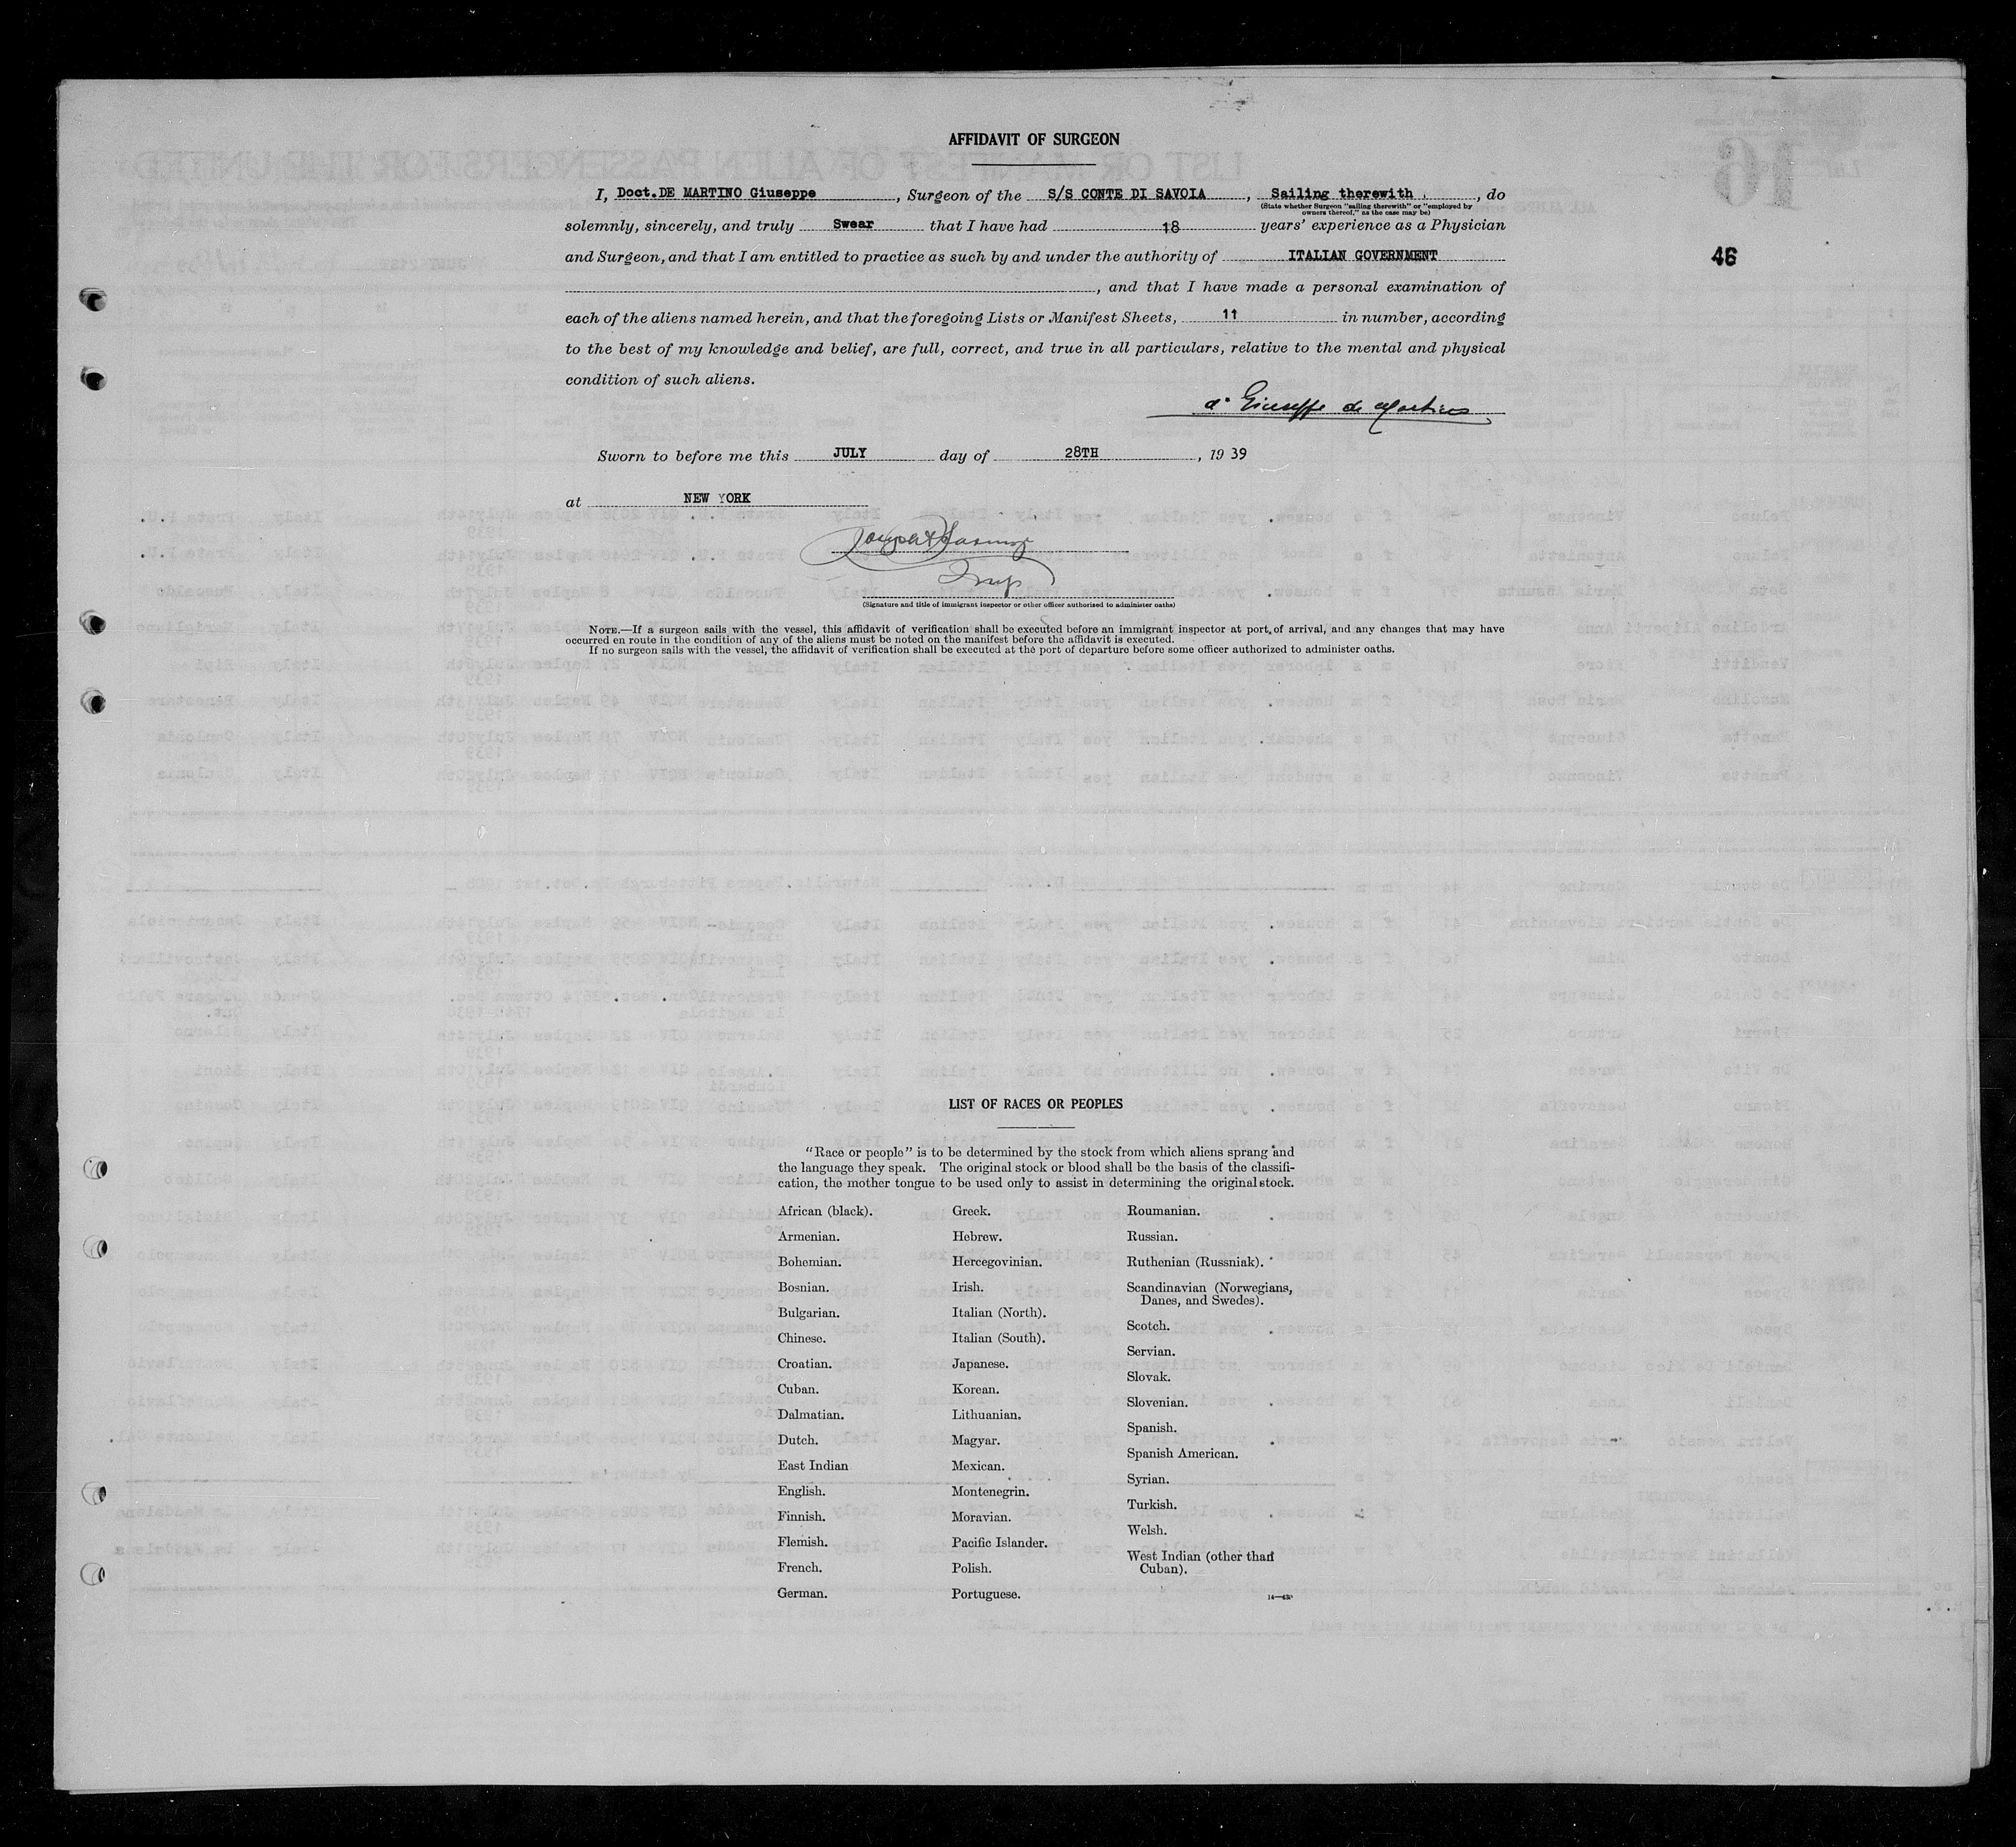 AFFIDAVIT OF SURGEON
I, Doct. DE MARTINO Giuseppe, Surgeon of the S/S CONTE DI SAVOIA, Sailing therewith, do
(State whether Surgeon "sailing therewith" or "employed by
owners thereof," as the case may be)
solemnly, sincerely, and truly Swear that I have had 18 years' experience as a Physician
and Surgeon, and that I am entitled to practice as such by and under the authority of ITALIAN GOVERNMENT
46
, and that I have made a personal examination of
each of the aliens named herein, and that the foregoing Lists or Manifest Sheets, 11 in number, according
to the best of my knowledge and belief, are full, correct, and true in all particulars, relative to the mental and physical
condition of such aliens.
dr Giuseppe de Martino
Sworn to before me this JULY day of 28TH, 1939
at NEW YORK
Insp
(Signature and title of immigrant inspector or other officer authorized to administer oaths)
NOTE.—If a surgeon sails with the vessel, this affidavit of verification shall be executed before an immigrant inspector at port of arrival, and any changes that may have
occurred en route in the condition of any of the aliens must be noted on the manifest before the affidavit is executed.
If no surgeon sails with the vessel, the affidavit of verification shall be executed at the port of departure before some officer authorized to administer oaths.
LIST OF RACES OR PEOPLES
"Race or people" is to be determined by the stock from which aliens sprang and
the language they speak. The original stock or blood shall be the basis of the classifi-
cation, the mother tongue to be used only to assist in determining the original stock.
African (black).
Armenian.
Bohemian.
Bosnian.
Bulgarian.
Chinese.
Croatian.
Cuban.
Dalmatian.
Dutch.
East Indian
English.
Finnish.
Flemish.
French.
German.
Greek.
Hebrew.
Hercegovinian.
Irish.
Italian (North).
Italian (South).
Japanese.
Korean.
Lithuanian.
Magyar.
Mexican.
Montenegrin.
Moravian.
Pacific Islander.
Polish.
Portuguese.
Roumanian.
Russian.
Ruthenian (Russniak).
Scandinavian (Norwegians,
Danes, and Swedes).
Scotch.
Servian.
Slovak.
Slovenian.
Spanish.
Spanish American.
Syrian.
Turkish.
Welsh.
West Indian (other than
Cuban).